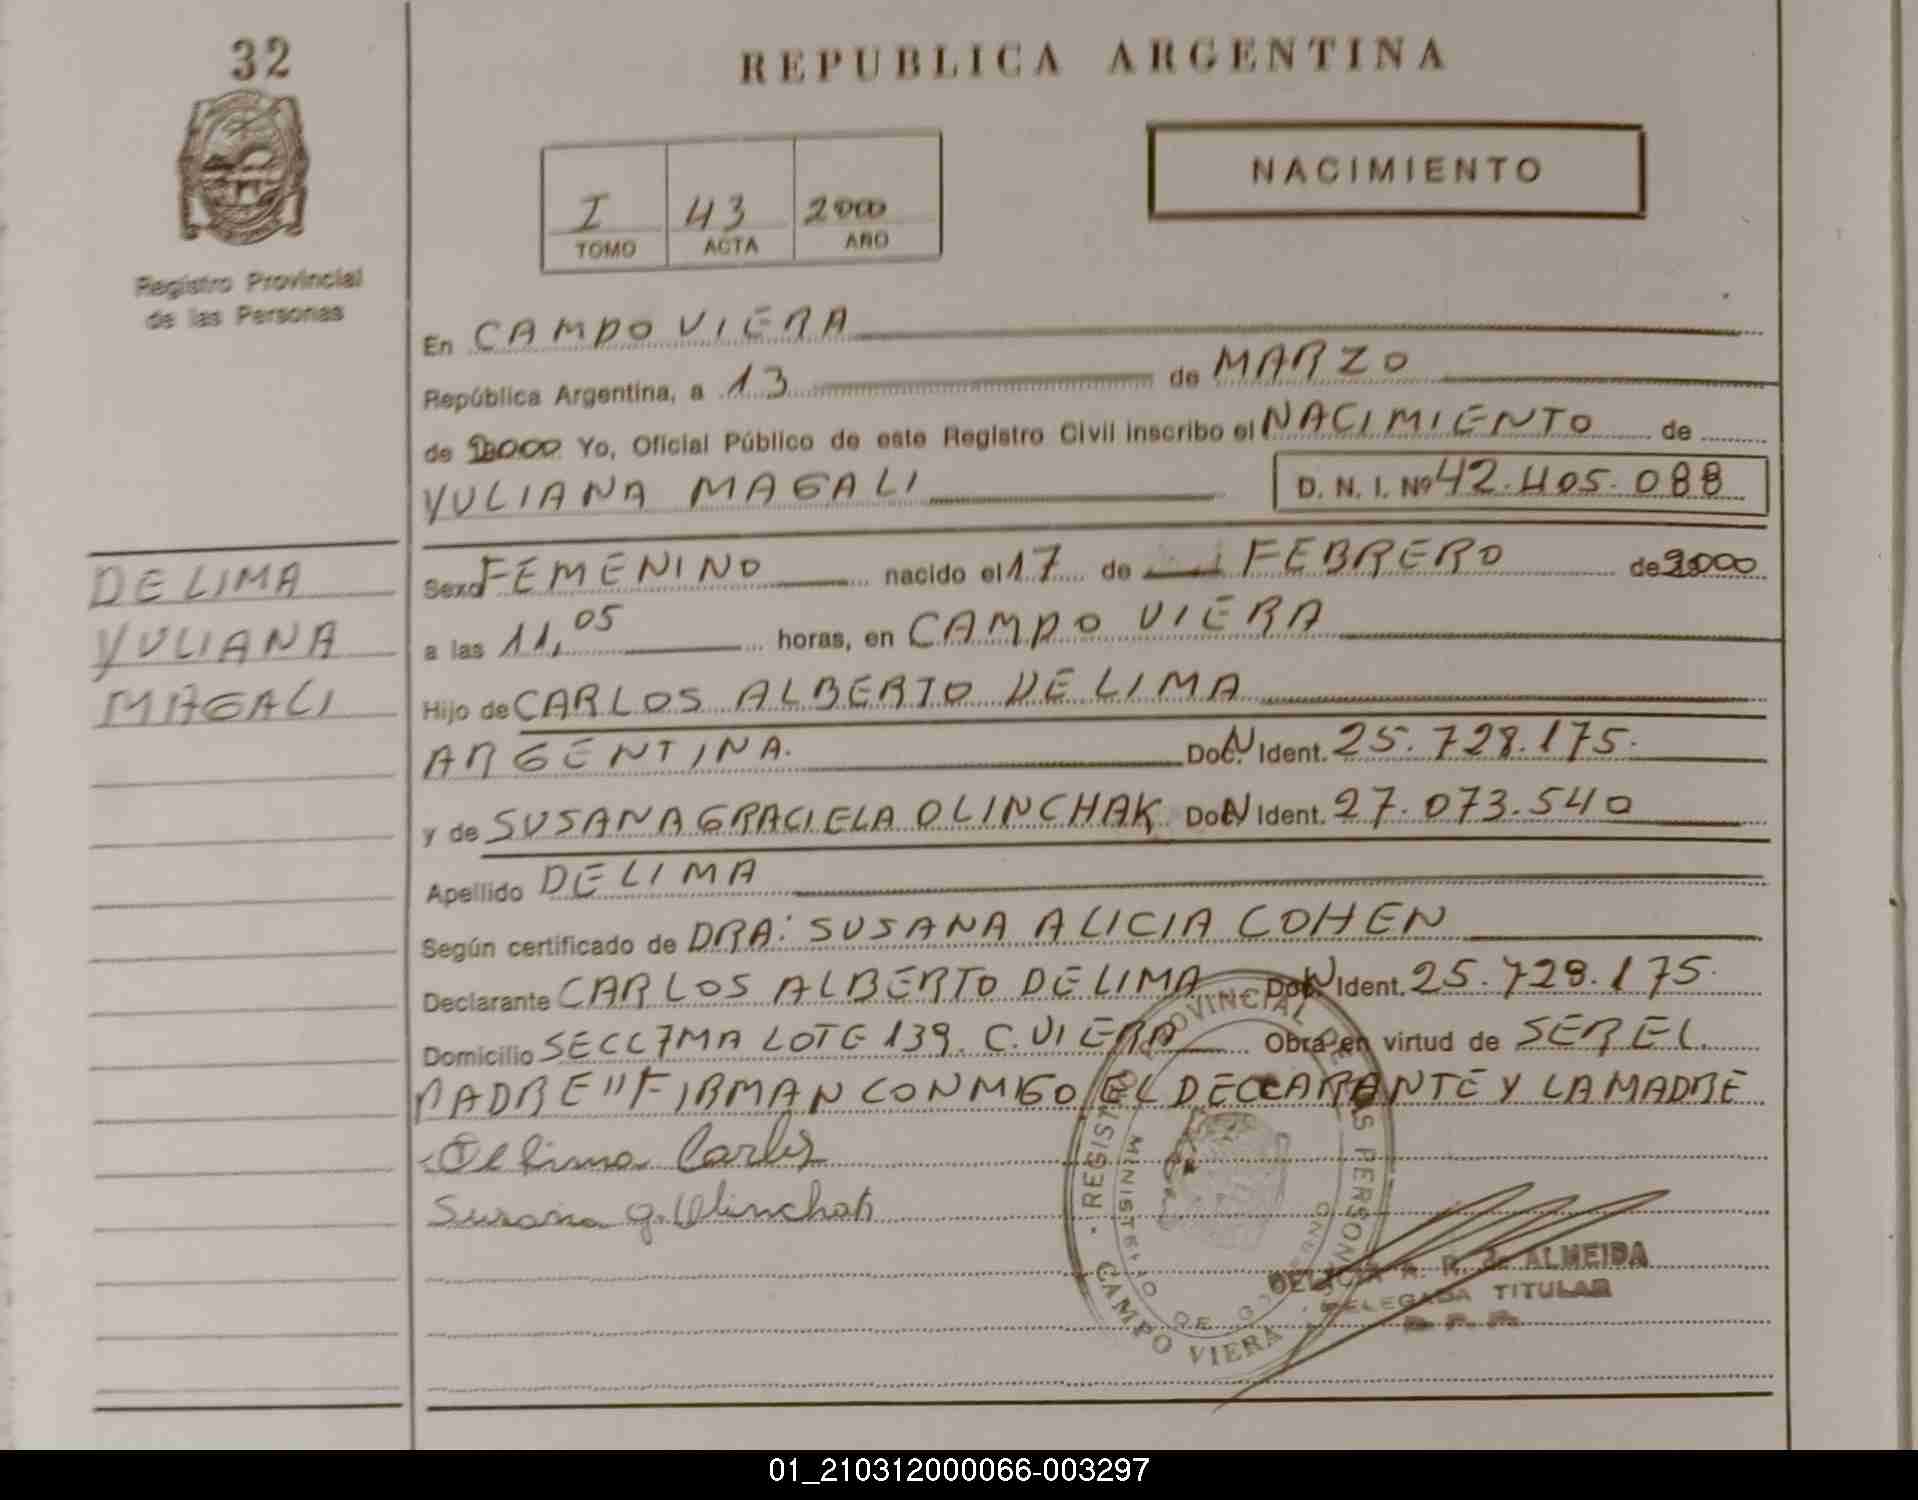 32
REPUBLICA ARGENTINA
NACIMIENTO
I 43 2000
TOMO ACTA AÑO
Registro Provincial
de las Personas
En CAMPO VIERA
República Argentina, a 13 de MARZO
de 2000 Yo, Oficial Público de este Registro Civil inscribo el NACIMIENTO de
YULIANA MAGALI D. N. I. Nº 42.405.088
DE LIMA
YULIANA
MAGALI
Sexo FEMENINO nacido el 17 de FEBRERO de 2000
a las 11,05 horas, en CAMPO VIERA
Hijo de CARLOS ALBERTO DE LIMA
ARGENTINA. Doc. N Ident. 25.728.175.
y de SUSANA GRACIELA OLINCHAK Doc. N Ident. 27.073.540
Apellido DE LIMA
Según certificado de DRA: SUSANA ALICIA COHEN
Declarante CARLOS ALBERTO DE LIMA Doc. N Ident. 25.728.175.
Domicilio SECC 7MA LOTE 139. C. VIERA Obra en virtud de SER EL
PADRE" FIRMAN CONMIGO EL DECLARANTE Y LA MADRE
De Lima Carlos
Susana G. Olinchak
REGISTRO PROVINCIAL DE LAS PERSONAS
MINISTERIO DE GOBIERNO
CAMPO VIERA
ALMEIDA
DELEGADA TITULAR
01_210312000066-003297